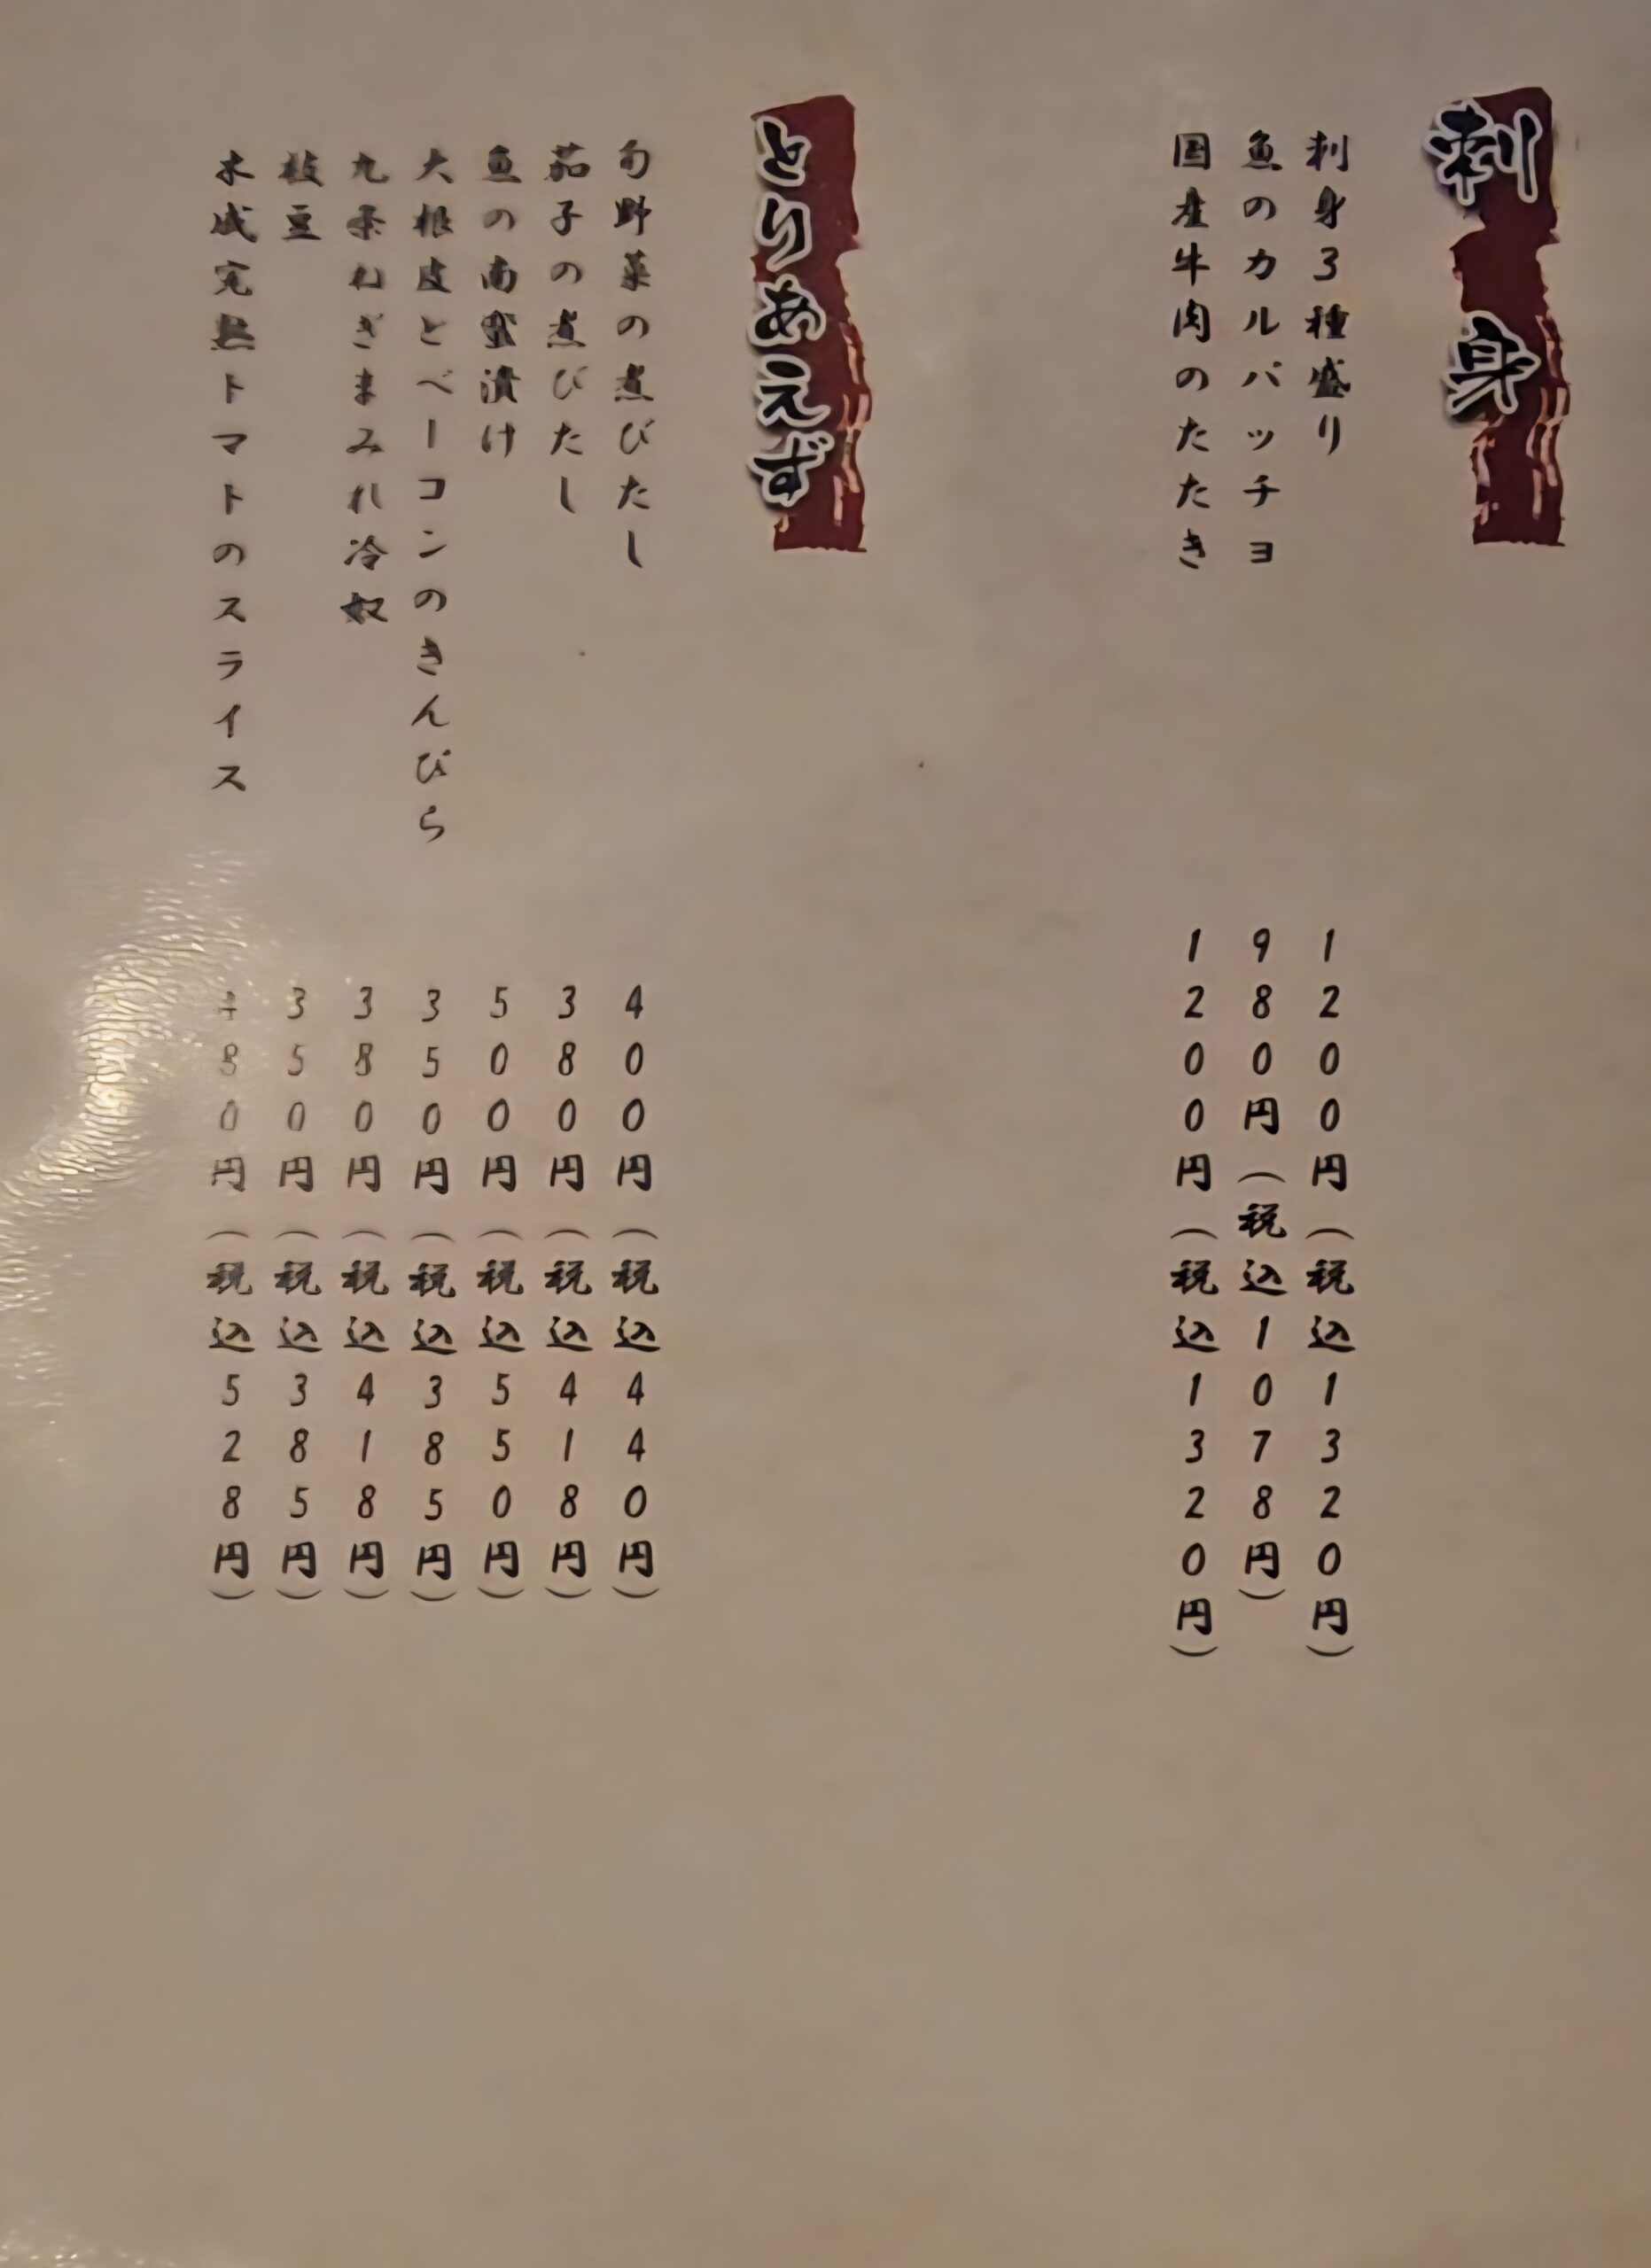 刺身
刺身3種盛り 1200円(税込1320円)
魚のカルパッチョ 980円(税込1078円)
国産牛肉のたたき 1200円(税込1320円)
とりあえず
旬野菜の煮びたし 400円(税込440円)
茄子の煮びたし 380円(税込418円)
魚の南蛮漬け 500円(税込550円)
大根皮とベーコンのきんぴら 350円(税込385円)
九条ねぎまみれ冷奴 380円(税込418円)
枝豆 350円(税込385円)
木成完熟トマトのスライス 480円(税込528円)